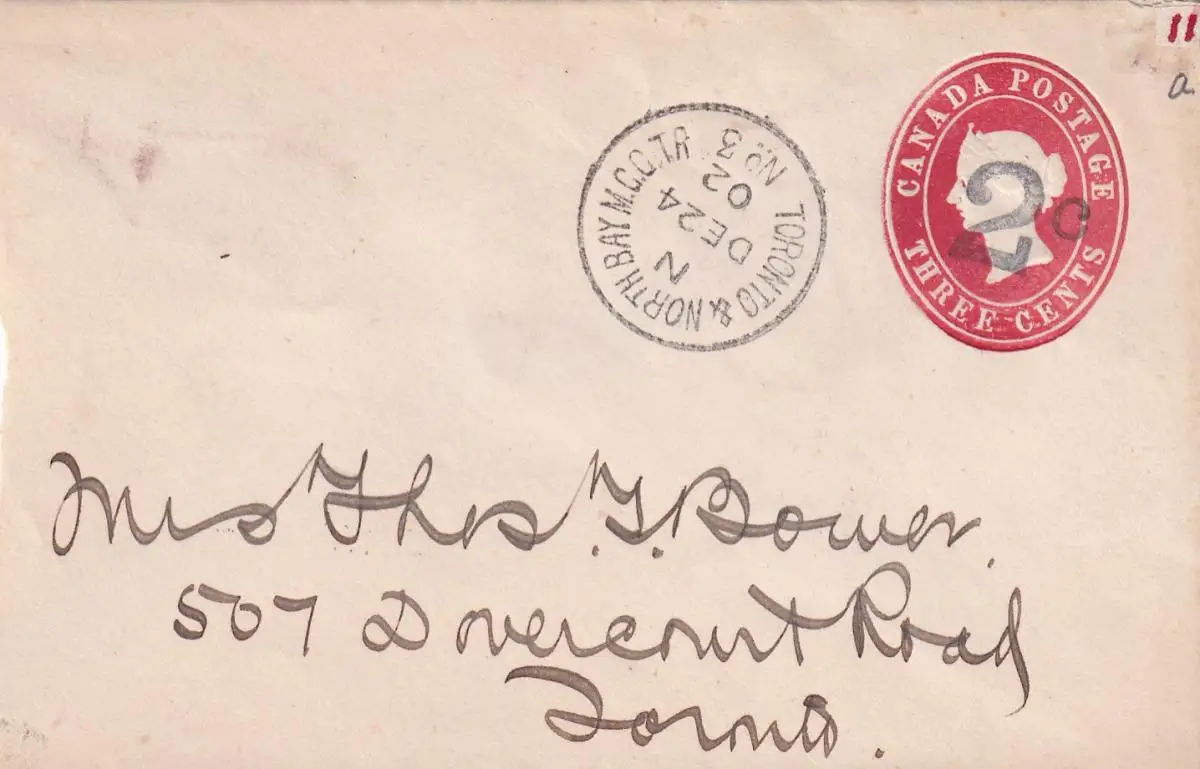 11
a
CANADA POSTAGE
THREE CENTS
2c
TORONTO & NORTH BAY M.C.C. TR
No. 3
N
DE 24
02
Mrs Thos. G. Bower.
507 Dovercourt Road
Toronto.